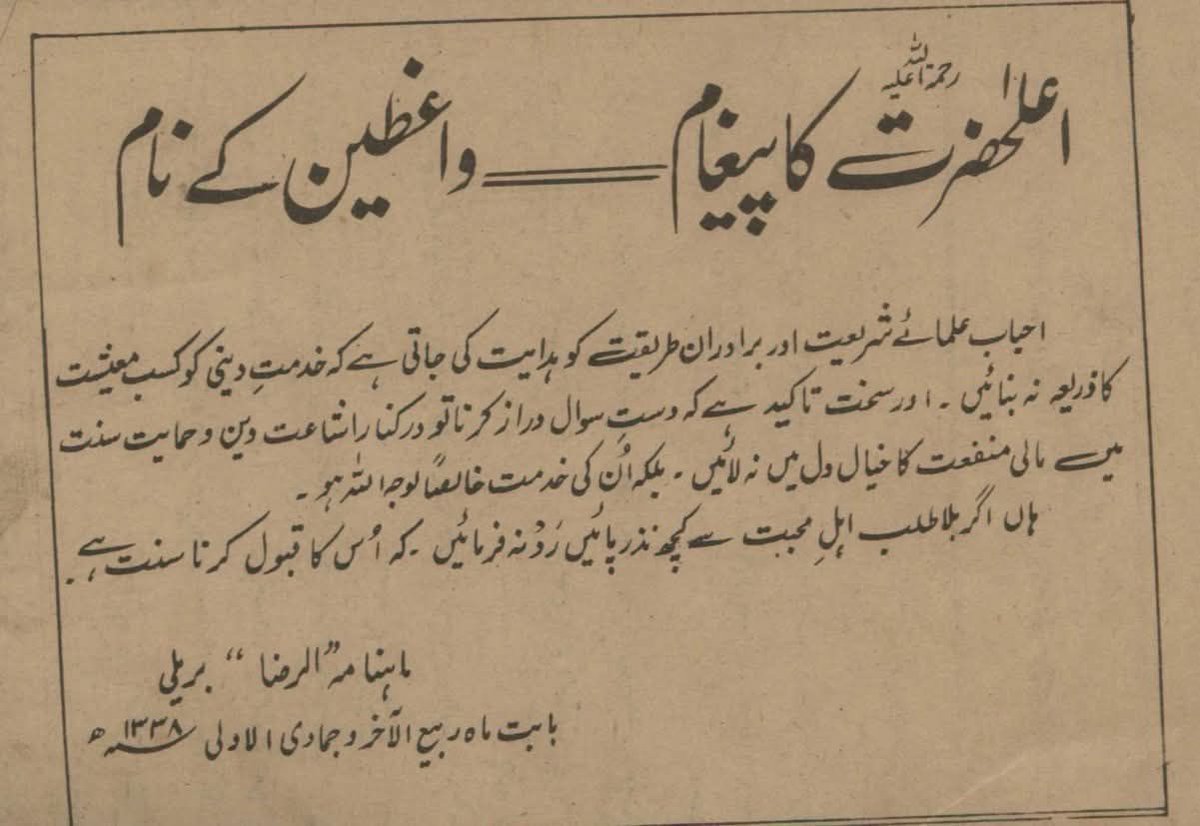 اعلٰحضرت رحمۃ اللہ علیہ کا پیغام ــــ واعظین کے نام
احباب علمائے شریعت اور برادران طریقت کو ہدایت کی جاتی ہے کہ خدمتِ دینی کو کسب معیشت
کا ذریعہ نہ بنائیں ۔ اور سخت تاکید ہے کہ دستِ سوال دراز کرنا تو درکنار اشاعت دین و حمایت سنت
میں مالی منفعت کا خیال دل میں نہ لائیں ۔ بلکہ اُن کی خدمت خالصًا لوجہ اللہ ہو ۔
ہاں اگر بلا طلب اہلِ محبت سے کچھ نذر پائیں رَدْ نہ فرمائیں ۔ کہ اُس کا قبول کرنا سنت ہے ۔
ماہنامہ ”الرضا“ بریلی
بابت ماہ ربیع الآخر و جمادی الاولی ۱۳۳۸ھ